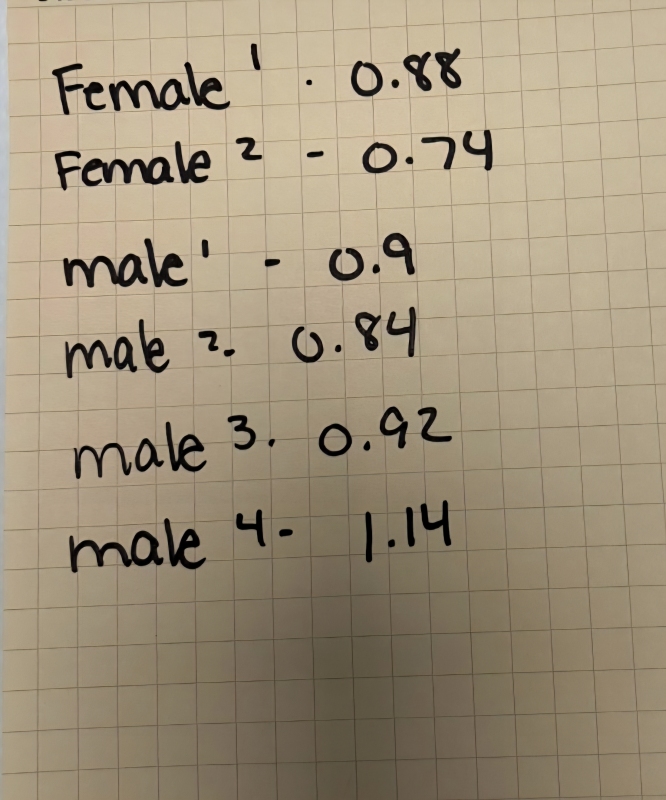 Female 1 . 0.88
Female 2 - 0.74
male 1 - 0.9
male 2. 0.84
male 3. 0.92
male 4- 1.14